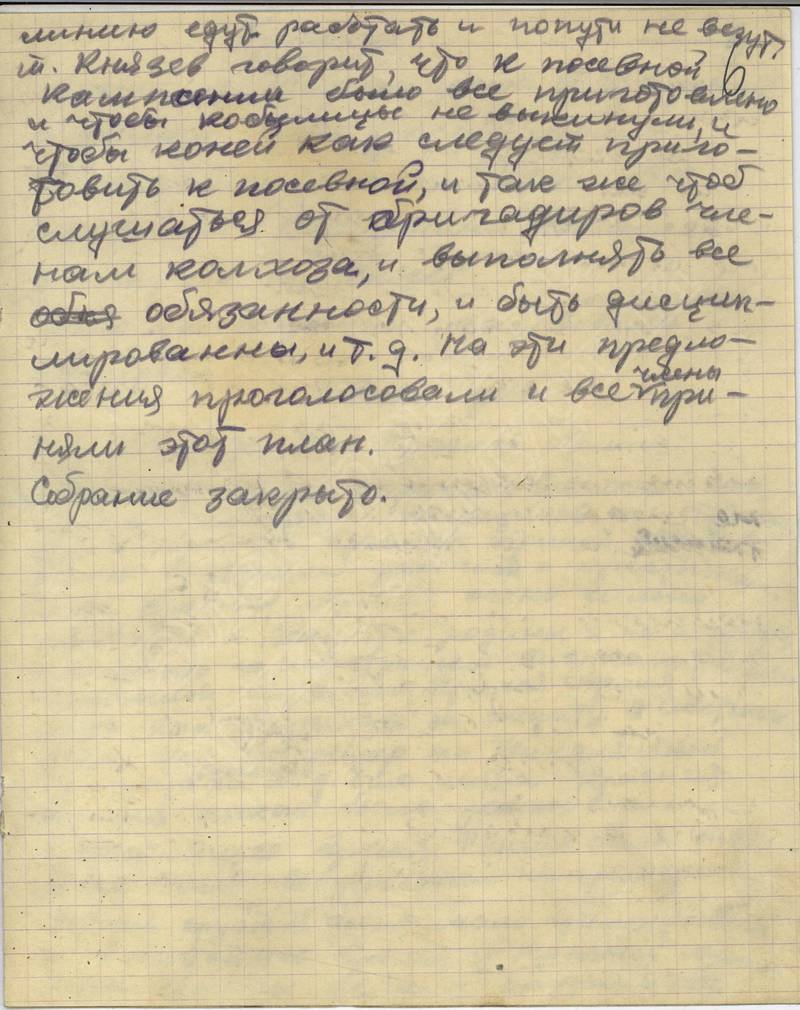 линию едут работать и попути не везут.
т. Князев говорит, что к посевной
кампонии было все приготовлено
и чтобы кобылицы не выкинули, и
чтобы коней как следует приго-
товить к посевной, и так же чтоб
слушаться от бригадиров чле-
нам колхоза, и выполнять все
обяз обязанности, и быть дисцип-
лированны, и т.д. на эти предло-
жения проголосовали и все члены при-
няли этот план.
Собрание закрыто.